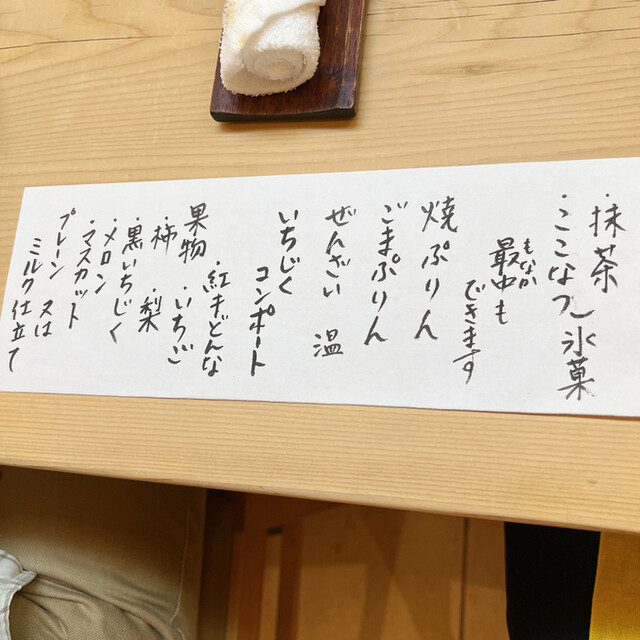 ・抹茶
・ここなつ氷菓
もなか
最中も
できます
焼ぷりん
ごまぷりん
ぜんざい 温
いちじく
コンポート
果物 ・紅まどんな
・いちご
・柿 ・梨
・黒いちじく
・メロン
・マスカット
プレーン 又は
ミルク仕立て